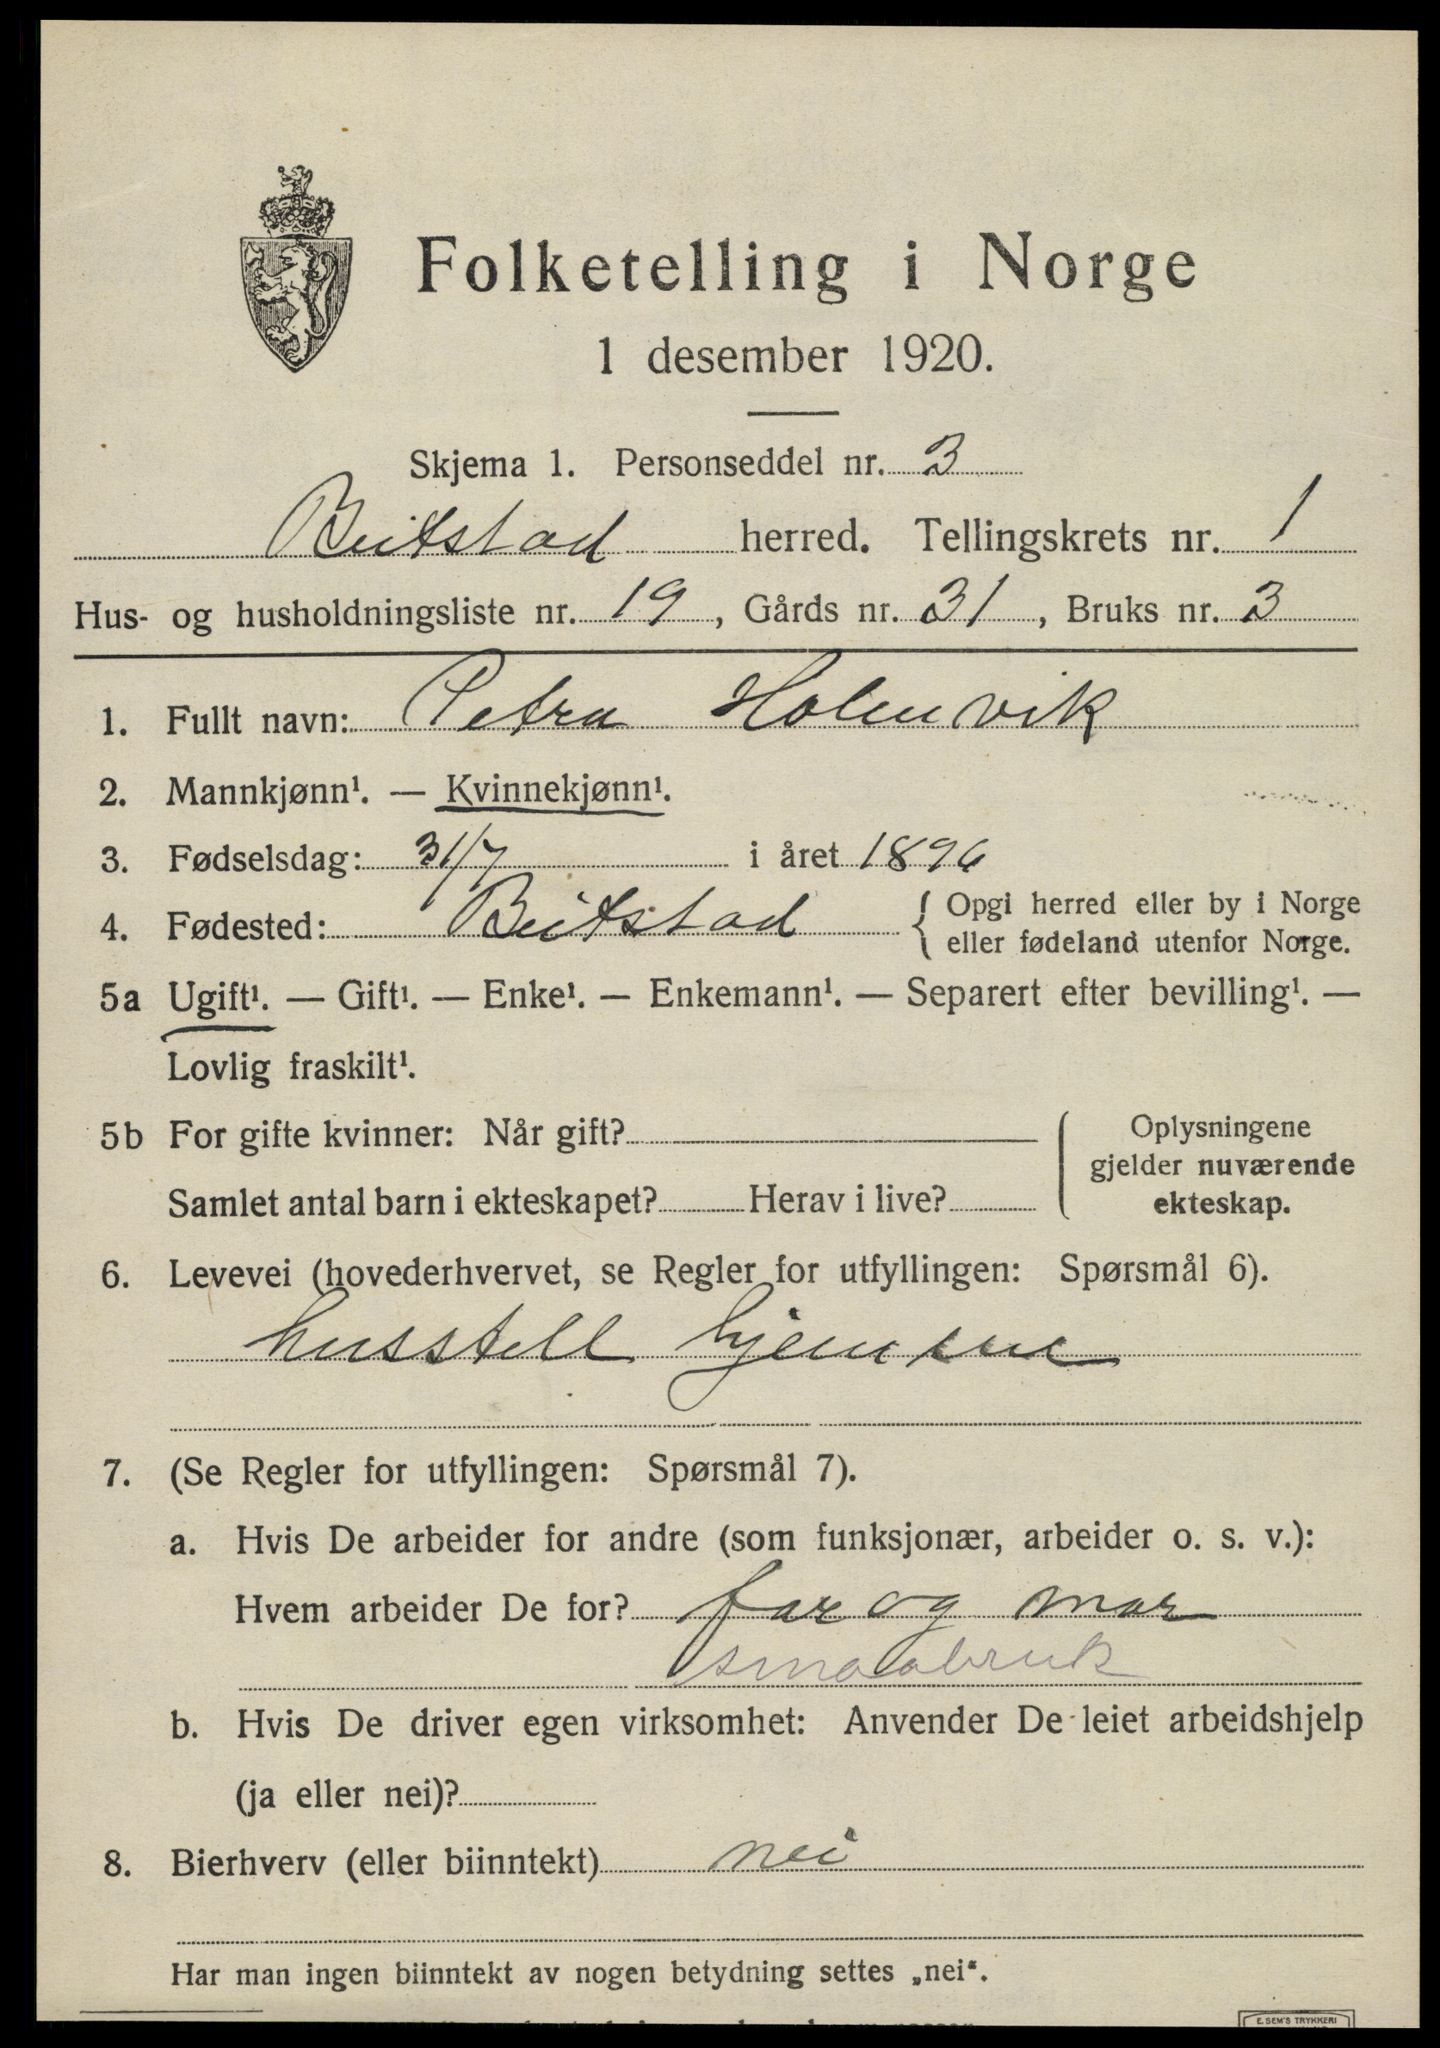 Folketelling i Norge
1 desember 1920.
Skjema 1. Personseddel nr. 3
Beitstad herred. Tellingskrets nr. 1
Hus- og husholdningsliste nr. 19, Gårds nr. 31, Bruks nr. 3
1. Fullt navn: Petra Holmvik
2. Mannkjønn¹. — Kvinnekjønn¹.
3. Fødselsdag: 31/7 i året 1896
4. Fødested: Beitstad { Opgi herred eller by i Norge
eller fødeland utenfor Norge.
5a Ugift¹. — Gift¹. — Enke¹. — Enkemann¹. — Separert efter bevilling¹. —
Lovlig fraskilt¹.
5b For gifte kvinner: Når gift?
Samlet antal barn i ekteskapet? Herav i live?
Oplysningene
gjelder nuværende
ekteskap.
6. Levevei (hovederhvervet, se Regler for utfyllingen: Spørsmål 6).
husstell hjemme
7. (Se Regler for utfyllingen: Spørsmål 7).
a. Hvis De arbeider for andre (som funksjonær, arbeider o. s. v.):
Hvem arbeider De for? far og mor
smaabruk
b. Hvis De driver egen virksomhet: Anvender De leiet arbeidshjelp
(ja eller nei)?
8. Bierhverv (eller biinntekt) nei
Har man ingen biinntekt av nogen betydning settes „nei“.
E. SEM'S TRYKKERI